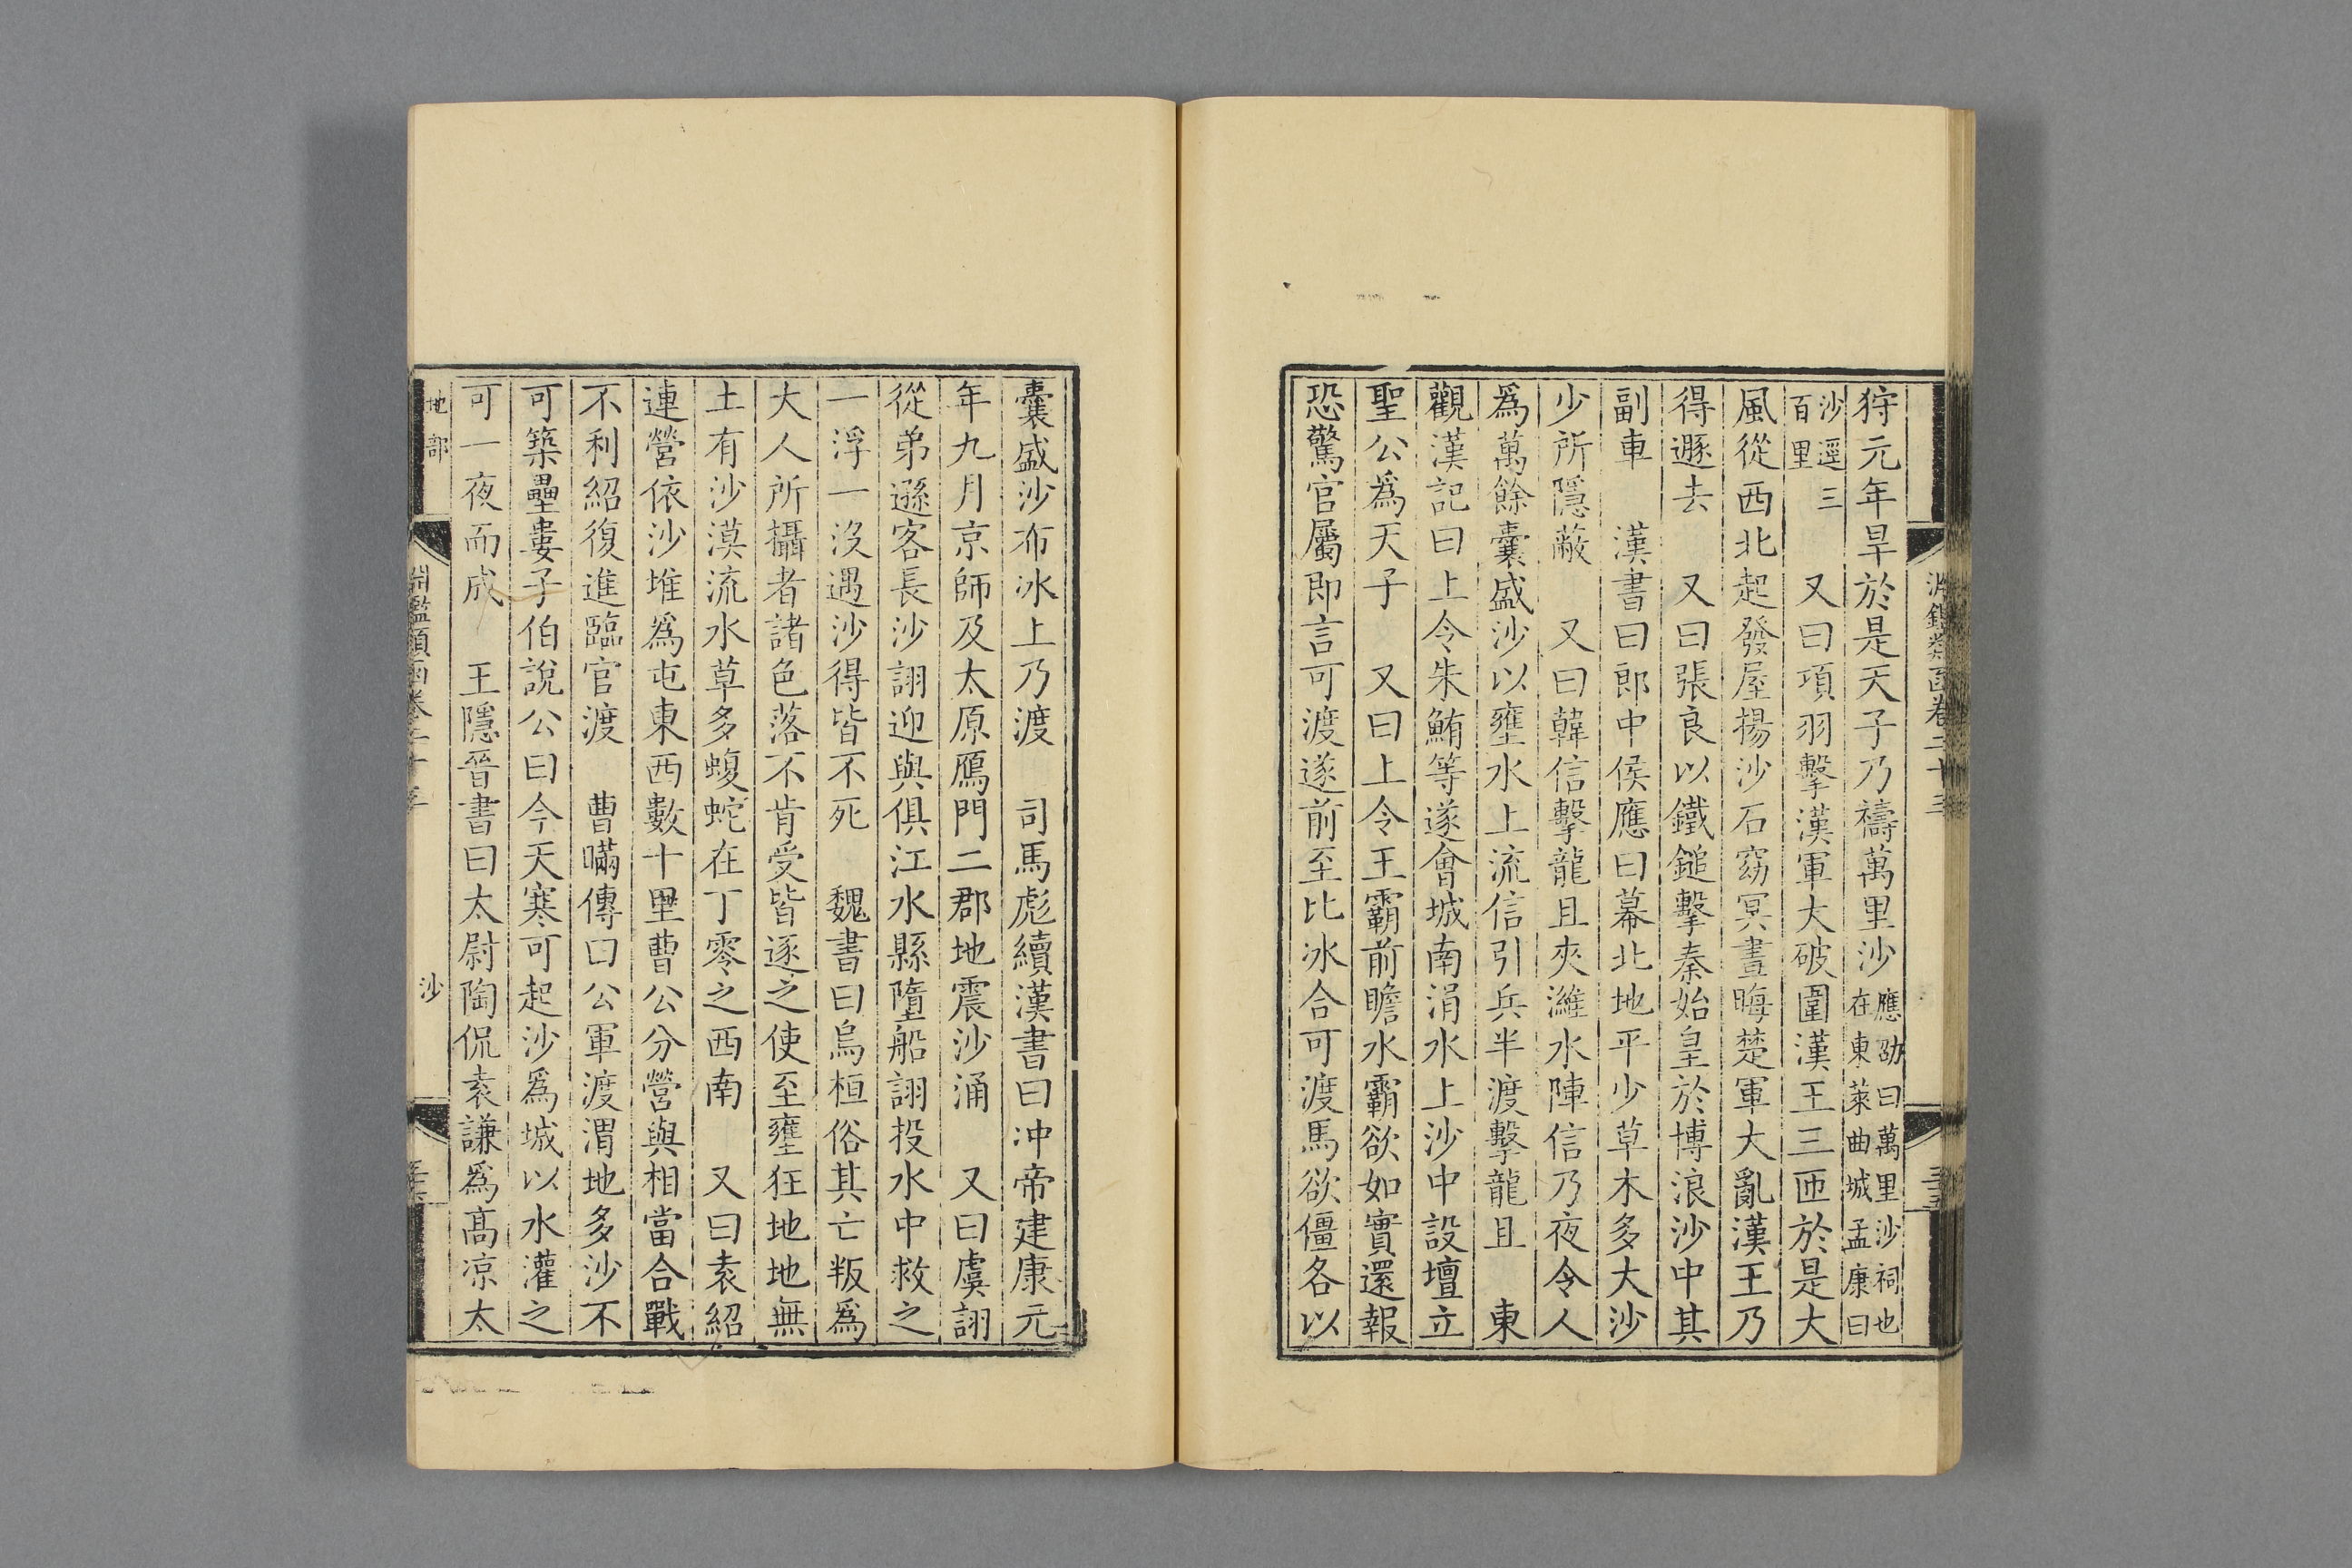 狩元年旱於是天子乃禱萬里沙應劭曰萬里沙祠也在東萊曲城孟康曰
沙逕三百里　又曰項羽擊漢軍大破圍漢王三匝於是大
風從西北起發屋揚沙石窈冥晝晦楚軍大亂漢王乃
得遯去　又曰張良以鐵鎚擊秦始皇於博浪沙中其
副車　漢書曰郎中侯應曰幕北地平少草木多大沙
少所隱蔽　又曰韓信擊龍且夾濰水陣信乃夜令人
爲萬餘囊盛沙以壅水上流信引兵半渡擊龍且　東
觀漢記曰上令朱鮪等遂會城南涓水上沙中設壇立
聖公爲天子　又曰上令王霸前瞻水霸欲如實還報
恐驚官屬即言可渡遂前至比冰合可渡馬欲僵各以
囊盛沙布冰上乃渡　司馬彪續漢書曰冲帝建康元
年九月京師及太原鴈門二郡地震沙涌　又曰虞詡
從弟遜客長沙詡迎與俱江水縣墮船詡投水中救之
一浮一沒遇沙得皆不死　魏書曰烏桓俗其亡叛爲
大人所攝者諸色落不肯受皆逐之使至壅狂地地無
土有沙漠流水草多蝮蛇在丁零之西南　又曰袁紹
連營依沙堆爲屯東西數十里曹公分營與相當合戰
不利紹復進臨官渡　曹瞞傳曰公軍渡渭地多沙不
可築壘婁子伯說公曰今天寒可起沙爲城以水灌之
可一夜而成　王隱晉書曰太尉陶侃袁謙爲高凉太
地部　淵鑑類函卷二十三　沙